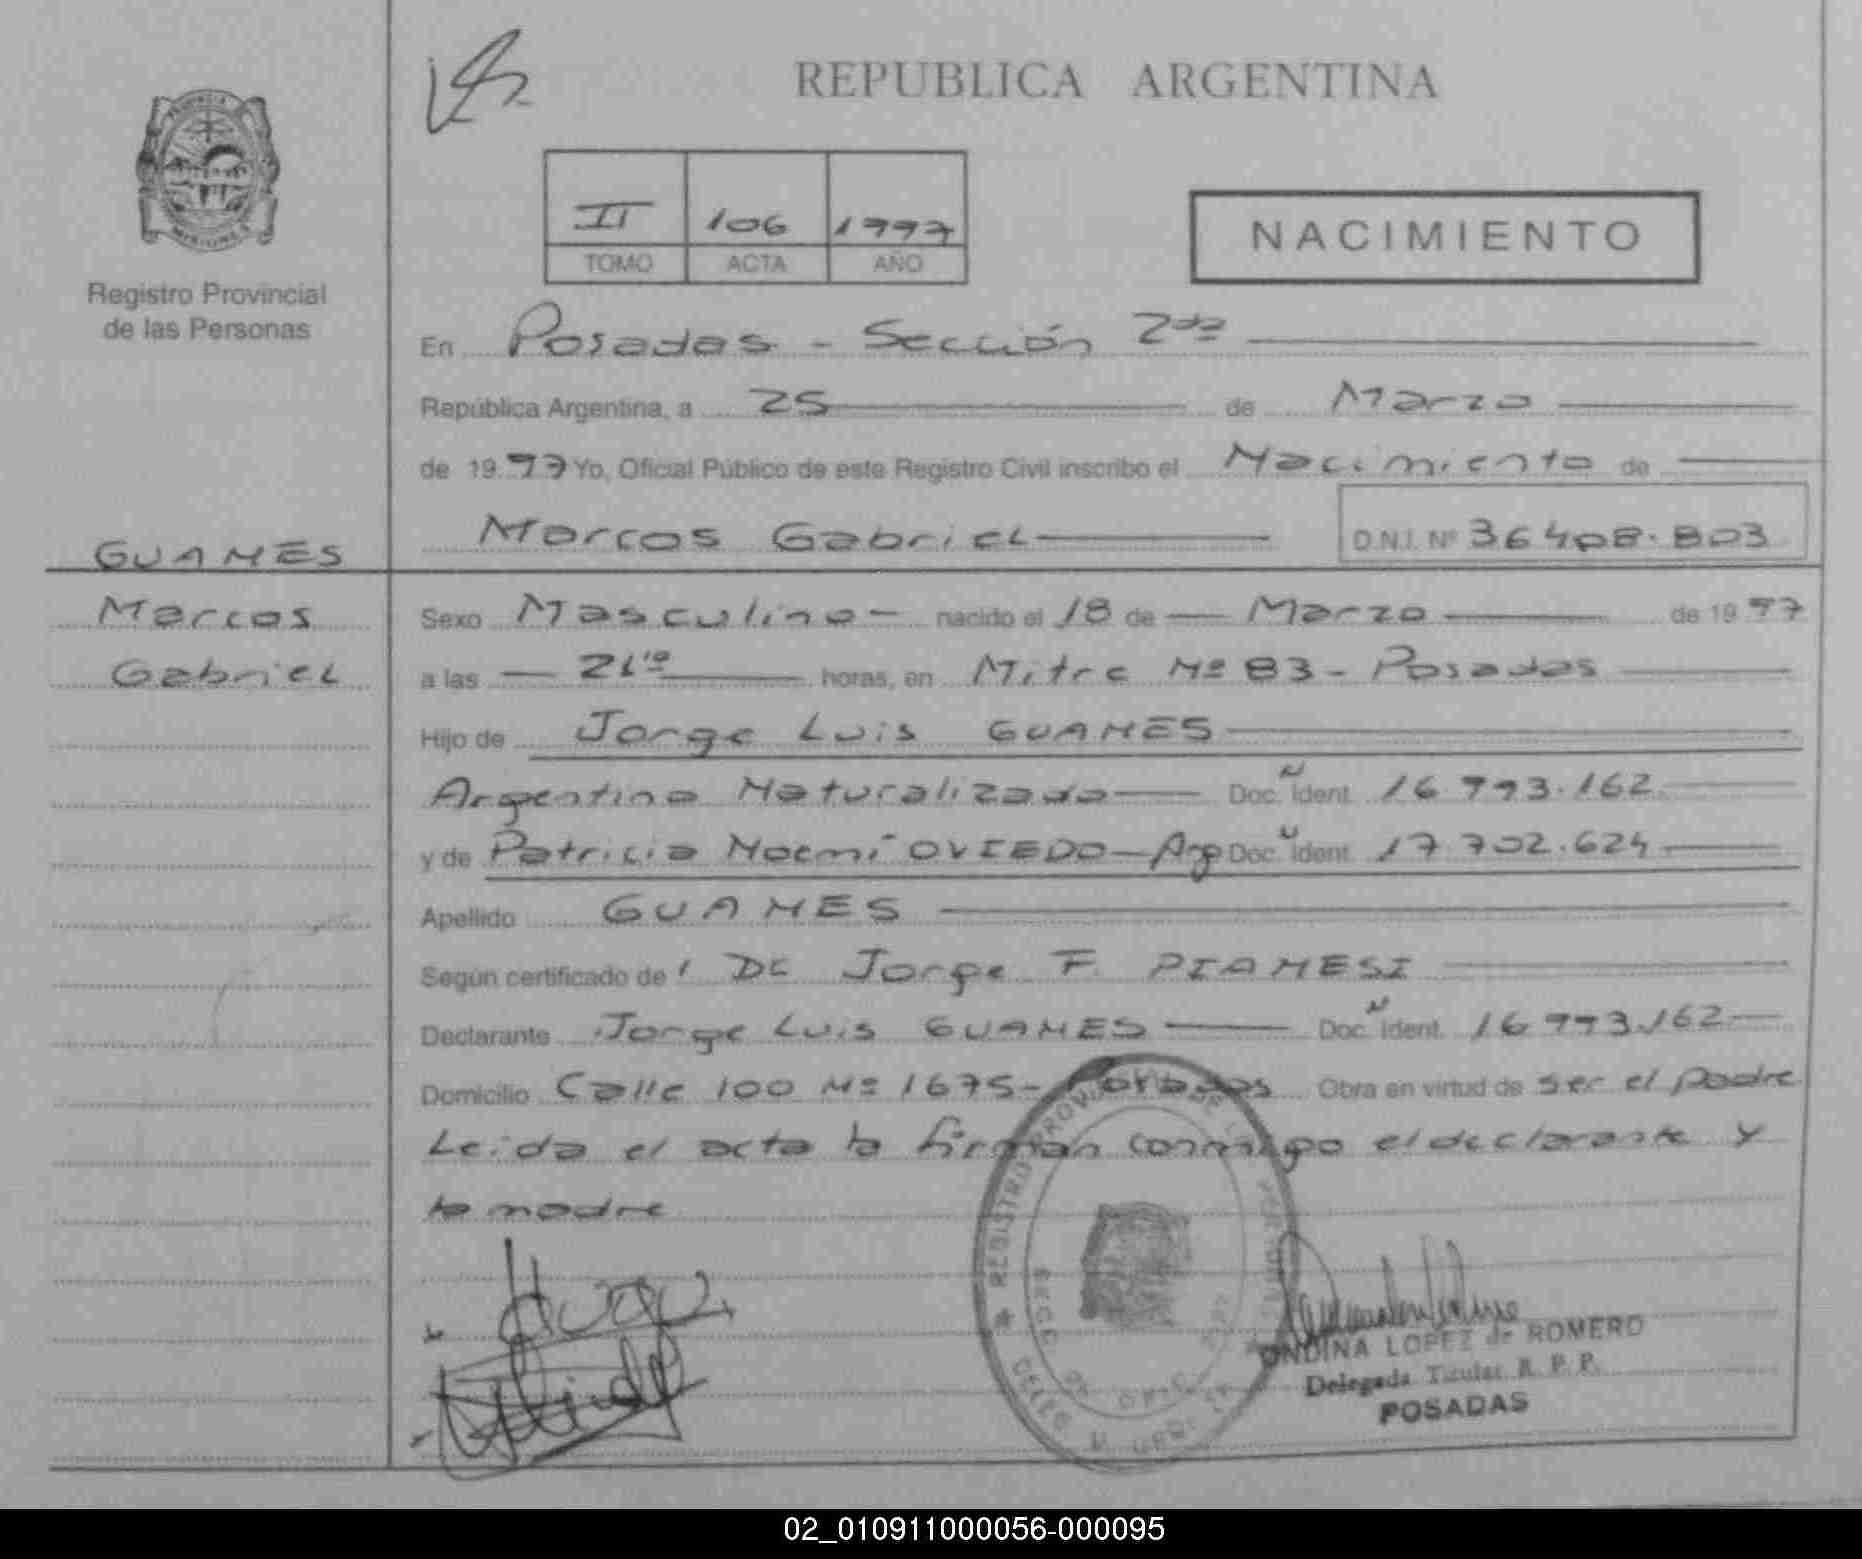 REPUBLICA ARGENTINA
PROVINCIA
MISIONES
Registro Provincial
de las Personas
II 106 1997
TOMO ACTA AÑO
NACIMIENTO
En Posadas - Sección 2da
República Argentina, a 25 de Marzo
de 1997 Yo, Oficial Público de este Registro Civil inscribo el Nacimiento de
GUANES
Marcos Gabriel D.N.I. Nº 36408.803
Marcos
Sexo Masculino - nacido el 18 de Marzo de 1997
Gabriel
a las 21 horas, en Mitre Nº 83 - Posadas
Hijo de Jorge Luis GUANES
Argentino Naturalizado Doc. N Ident. 16.993.162
y de Patricia Noemí OVIEDO - Arg Doc. N Ident. 17.702.624
Apellido GUANES
Según certificado de Jorge F. PIANESI
Declarante Jorge Luis GUANES Doc. N Ident. 16.993.162
Domicilio Calle 100 Nº 1675 - Posadas Obra en virtud de ser el padre
Leida el acta la firman conmigo el declarante y
la madre
ONDINA LOPEZ de ROMERO
Delegada Titular R. P. P.
POSADAS
02_010911000056-000095